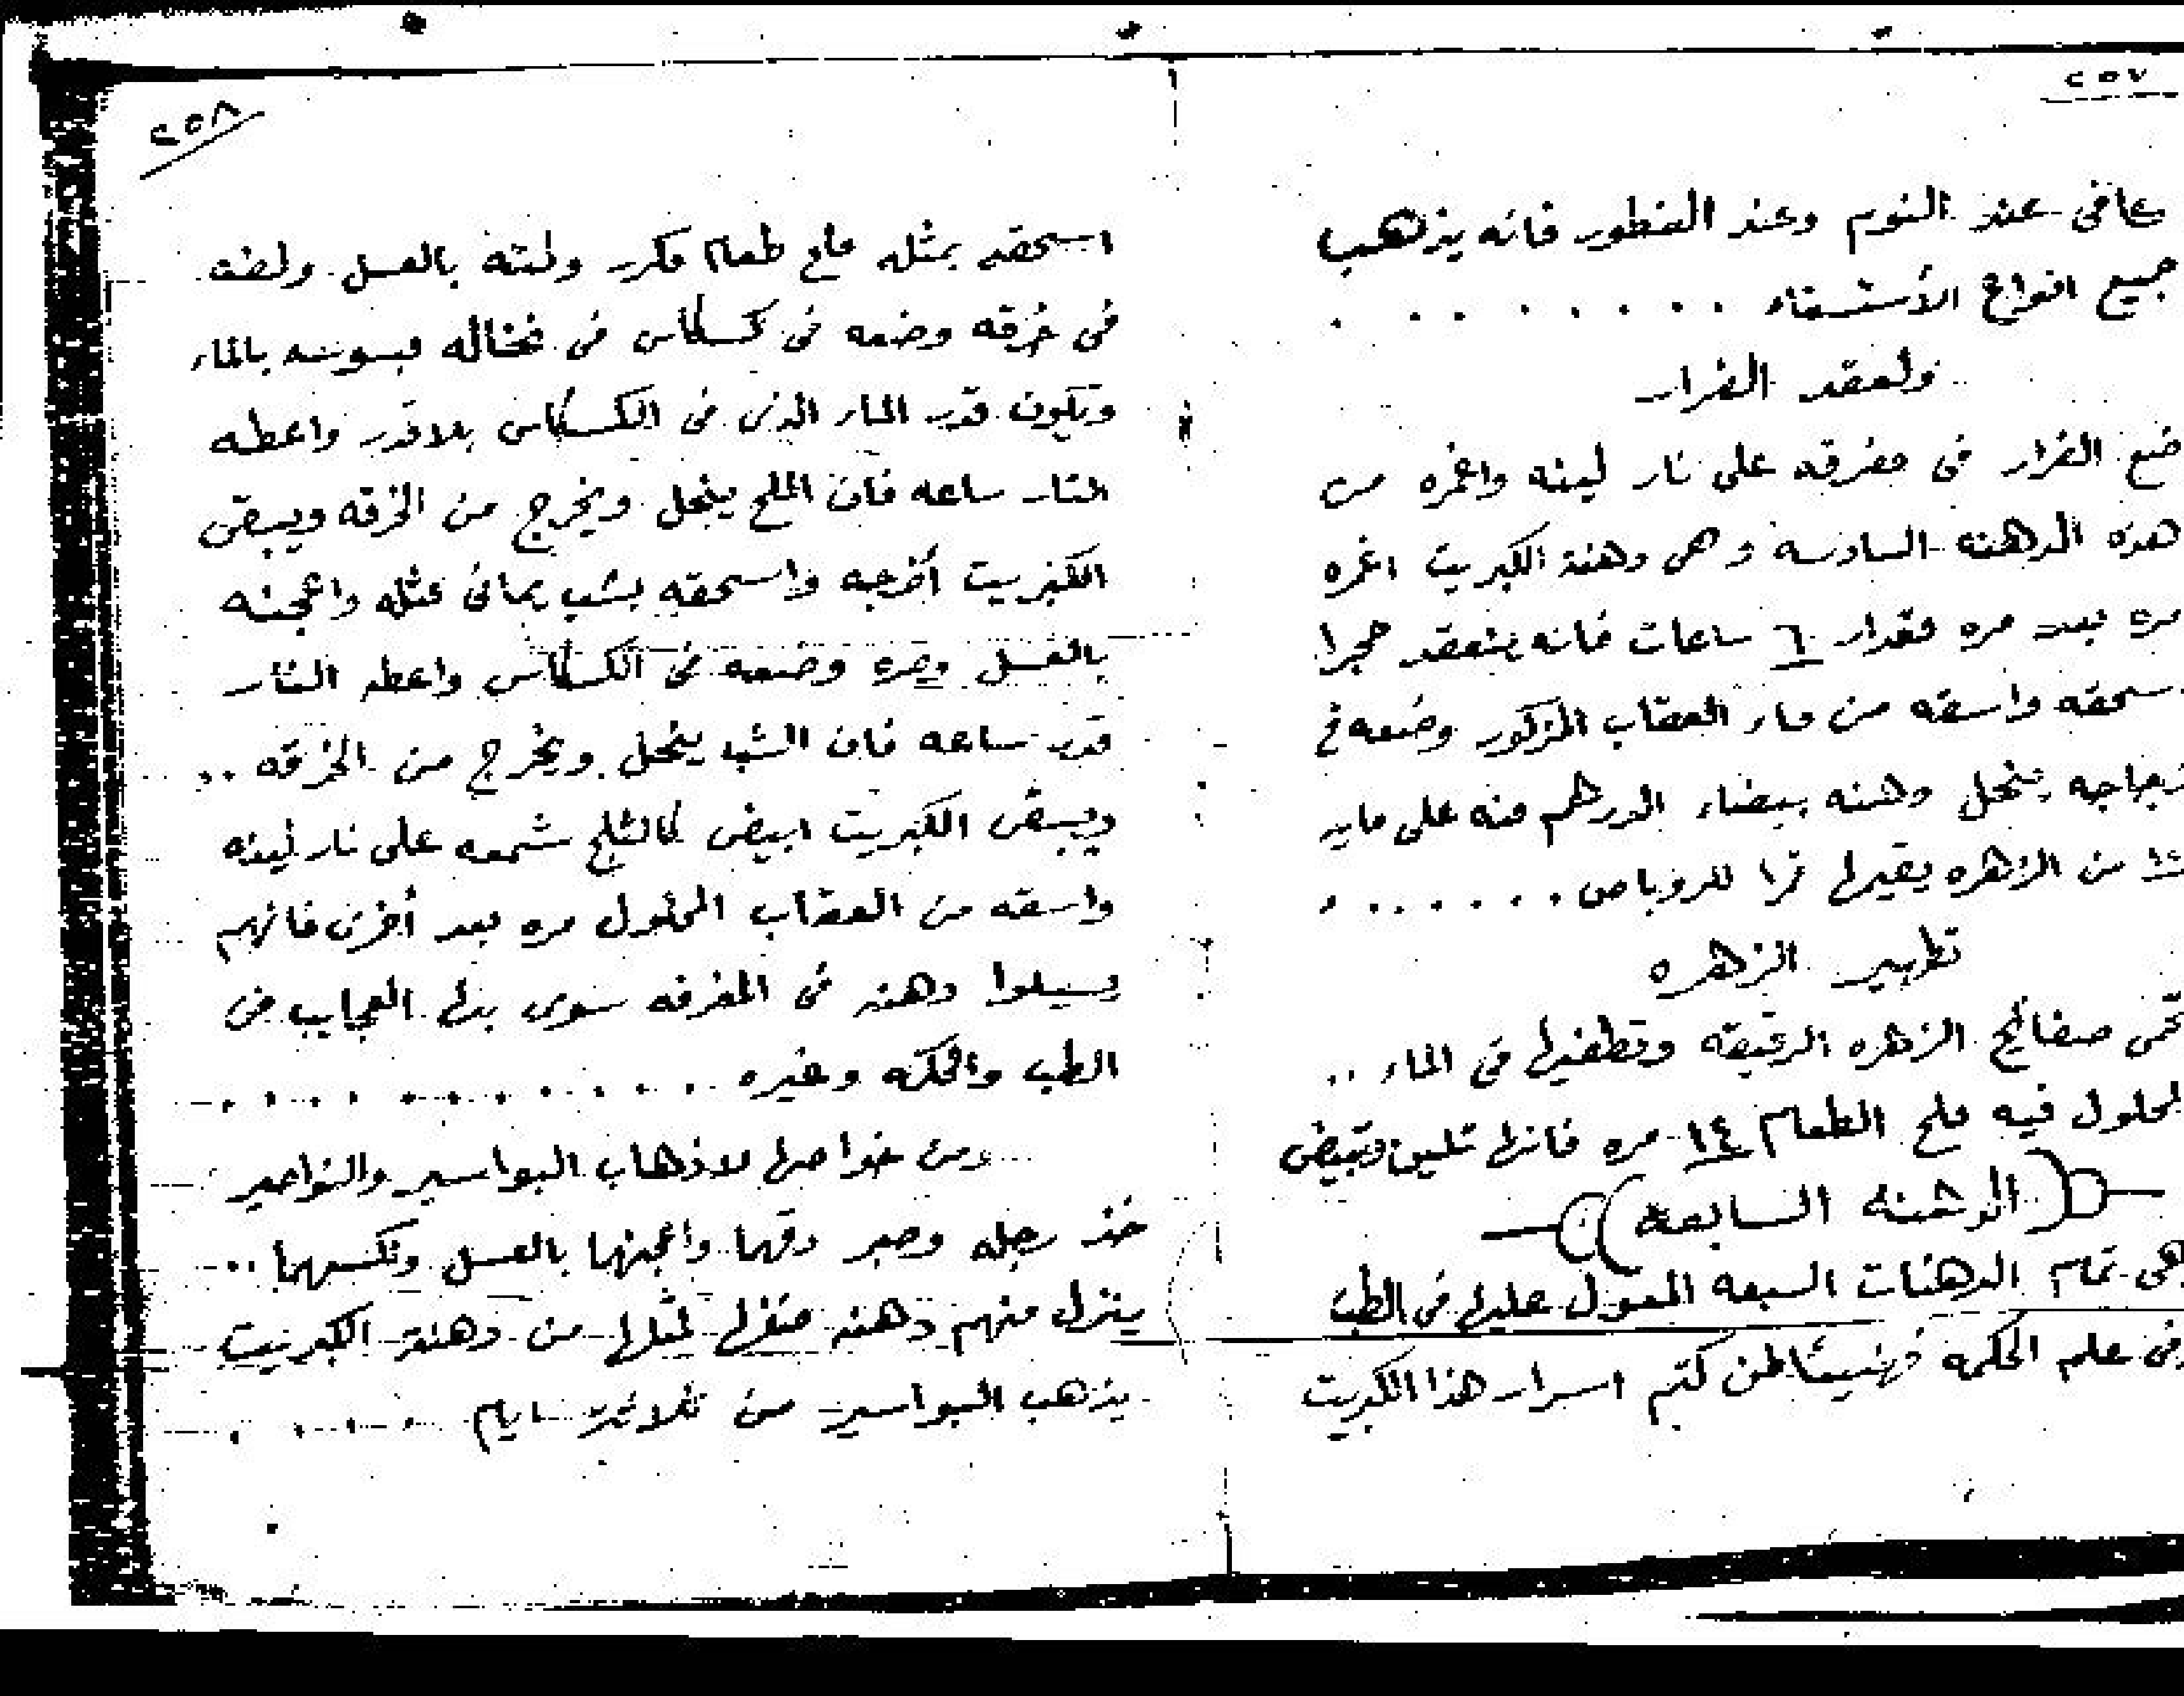 ٢٥٧
كافى عند النوم وعند الفطور فانه يذهب
جميع انواع الأستسقاء . . . . . . . . .
ولعقد الفرار
ضع الفرار فى مغرفه على نار لينه واغمره من
هذه الدهنه السادسه وهى دهنة الكبريت اغمره
مره بعد مره مقدار ٦ ساعات فانه ينعقد حجرا
اسحقه واسقه من ماء العقاب المذكور وضعه فى
زجاجه ينحل دهنه بيضاء الدرهم منه على مايه
من الزهره يقيمها قرا للروباص . . . . . . .
تطهير الزهره
تحمى صفائح الزهره الرقيقه وتطفيها فى الماء ..
المحلول فيه ملح الطعام ١٤ مره فانها تلين وتبيض
(الدهنه السابعه)
وهى تمام الدهنات السبعه المعول عليها فى الطب
وفى علم الحكمه فهنيئا لمن كتم اسرار هذا الكبريت
٢٥٨
اسحقه بمثله ملح طعام مكرر ولته بالعسل ولفه
فى خرقه وضعه فى كسكاس فى نخاله مبسوسه بالماء
وتكون قدر الماء الذى فى الكسكاس بلا قدر واعطه
النار ساعه فان الملح ينحل ويخرج من الخرقه ويبقى
الكبريت أخرجه واسحقه بشب يمانى مثله واعجنه
بالعسل وصره وضعه فى الكسكاس واعطه النار
قدر ساعه فان الشب ينحل ويخرج من الخرقه ..
ويبقى الكبريت ابيض كالثلج شمعه على نار لينه
واسقه من العقاب المحلول مره بعد أخرى فانهم
يسيلوا دهنه فى المغرفه سوى بها العجايب فى
الطب والحكمه وغيره . . . . . . . . . . .
ومن خواصها لاذهاب البواسير والنواصير
خذ رجله وصبر دقها واعجنها بالعسل ونكسهما ..
ينزل منهم دهنه ضفها لمثلها من دهنة الكبريت
يذهب البواسير من ثلاثة ايام . . . . .